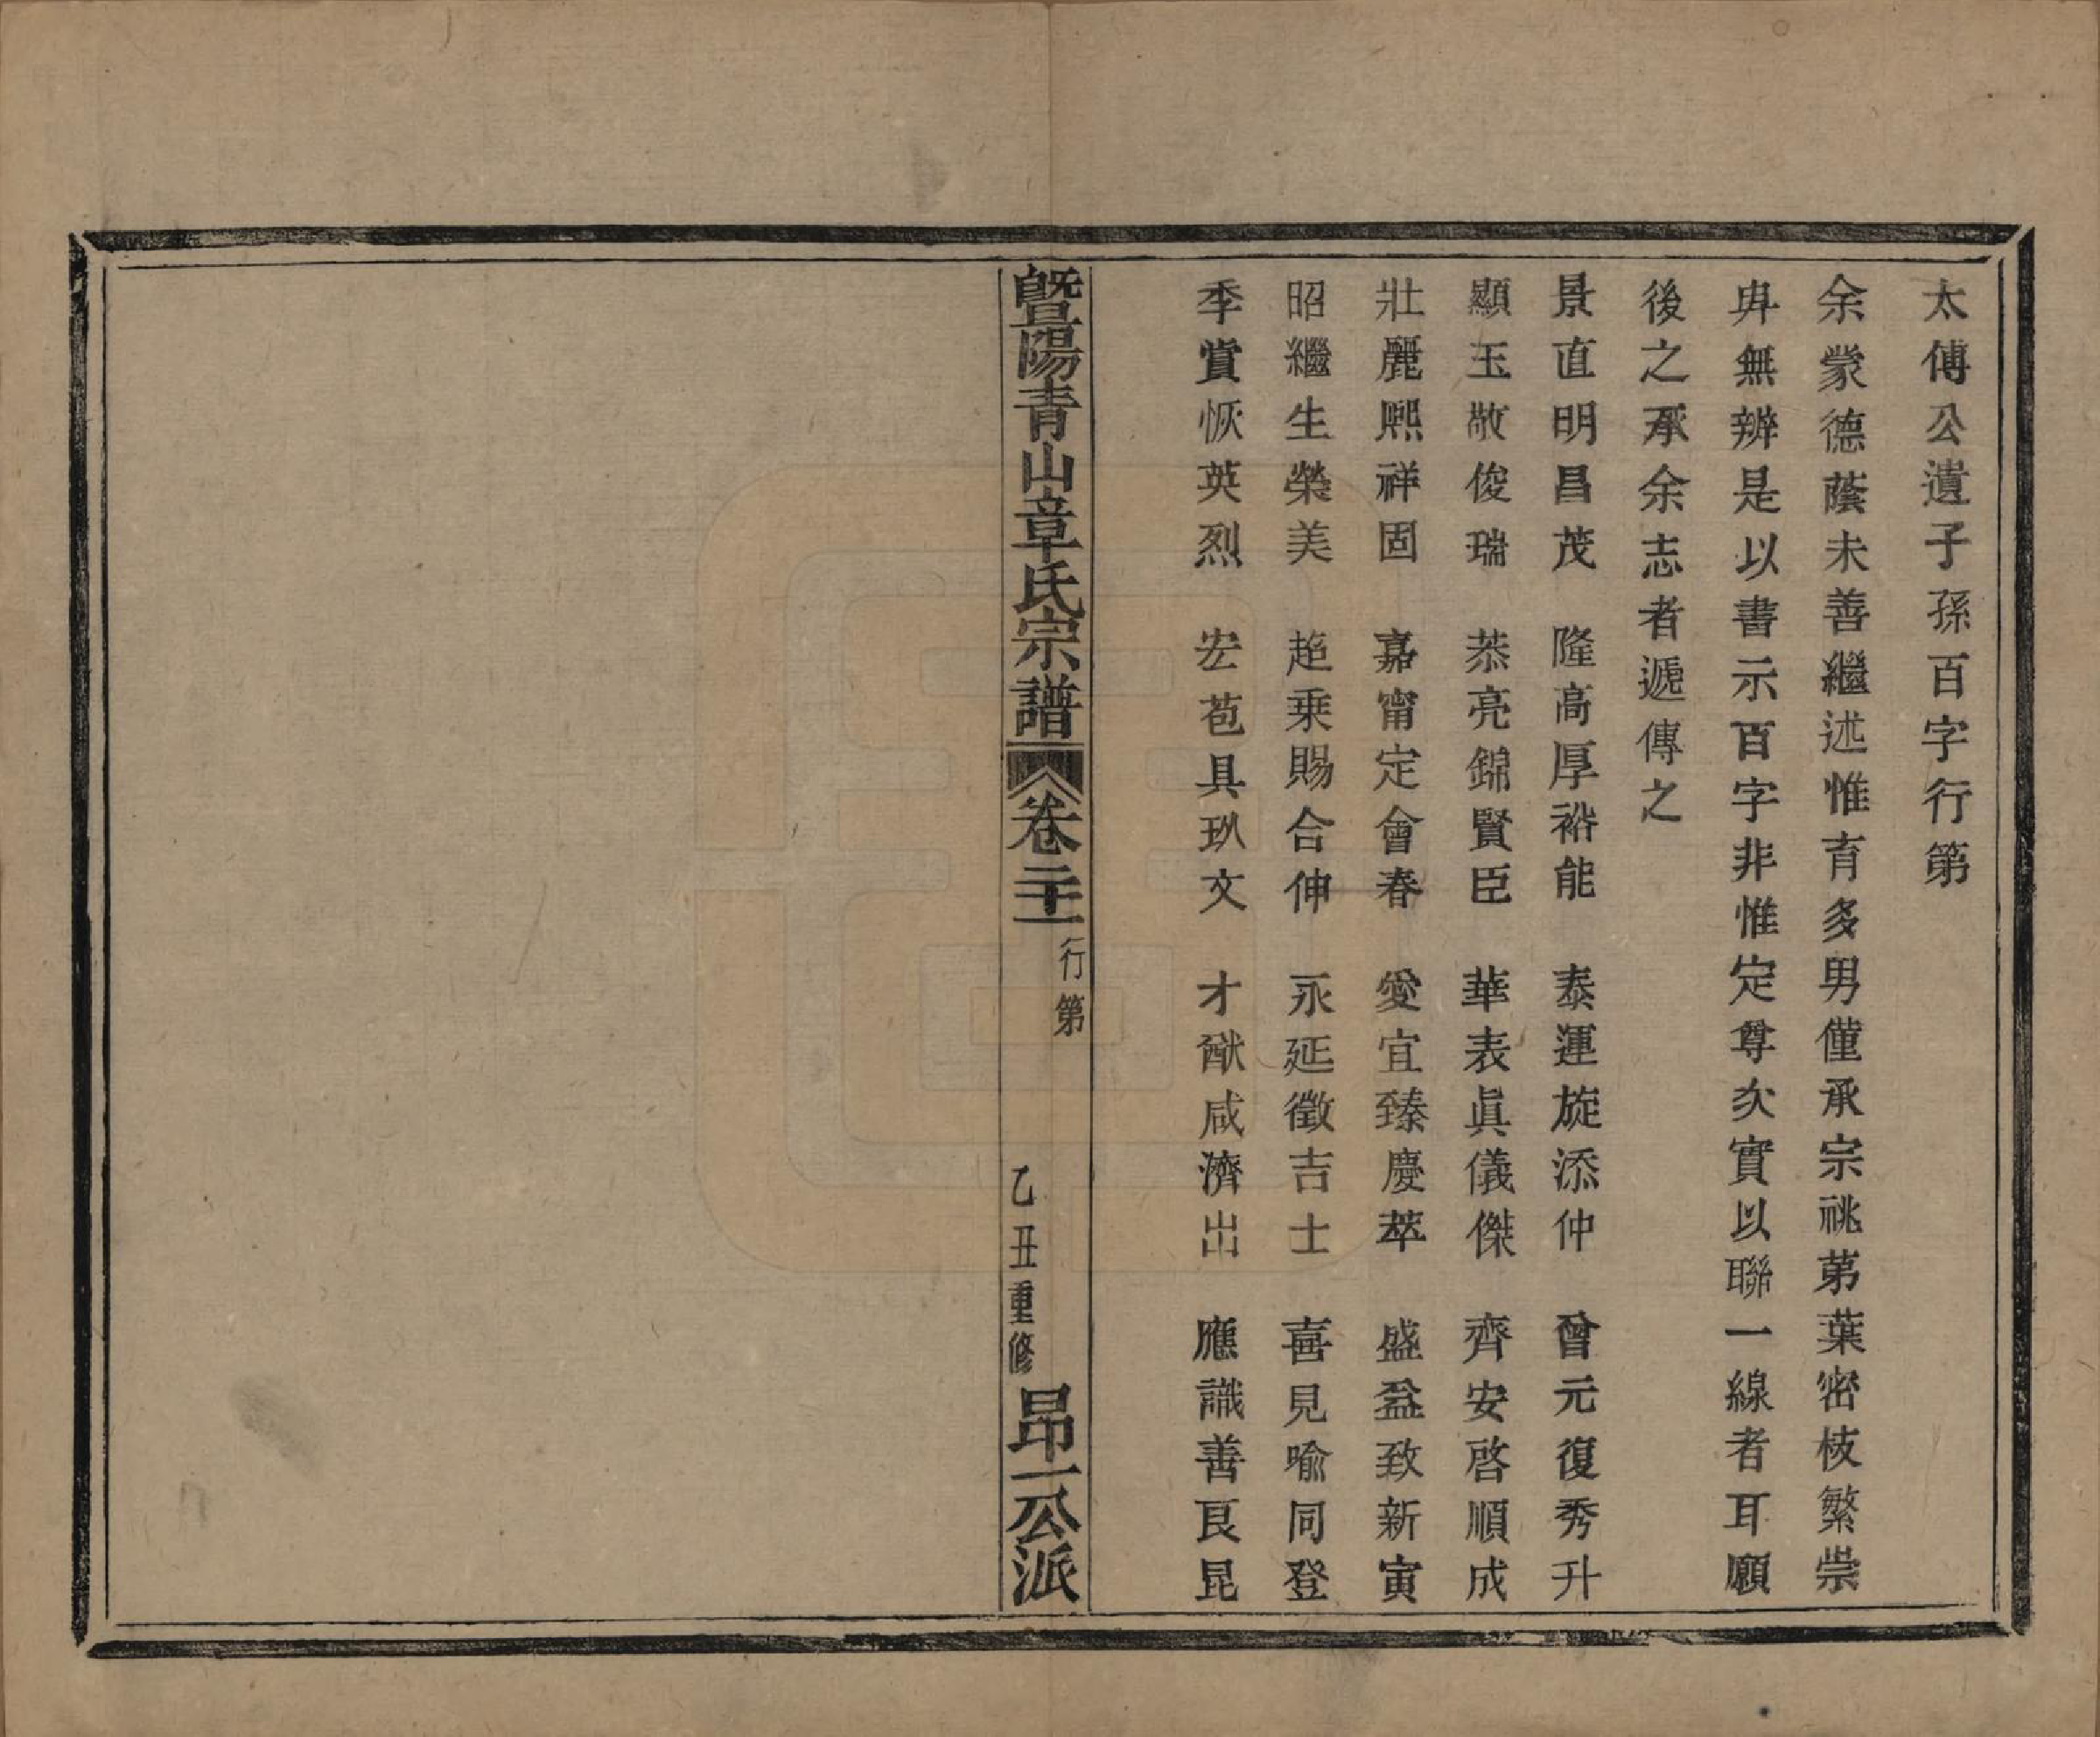 太傅公遺子孫百字行第
余蒙德蔭未善繼述惟育多男僅承宗祧苐葉密枝繁祟
冉無辨是以書示百字非惟定尊次實以聯一線者耳願
後之承余志者遞傳之
景直明昌茂　隆高厚裕能　泰運旋添仲　曾元復秀升
顯玉敬俊瑞　恭亮錦賢臣　華表眞儀傑　齊安啓順成
壯麗熈祥固　嘉甯定會春　愛宜臻慶萃　盛益致新寅
昭繼生榮美　趋乗賜合伸　永延徵吉士　喜見喻同登
季賞恢英烈　宏苞具玖文　才猷咸濟出　應識善良昆
暨陽青山章氏宗譜　卷二十一　行第　乙丑重修　昂一公派